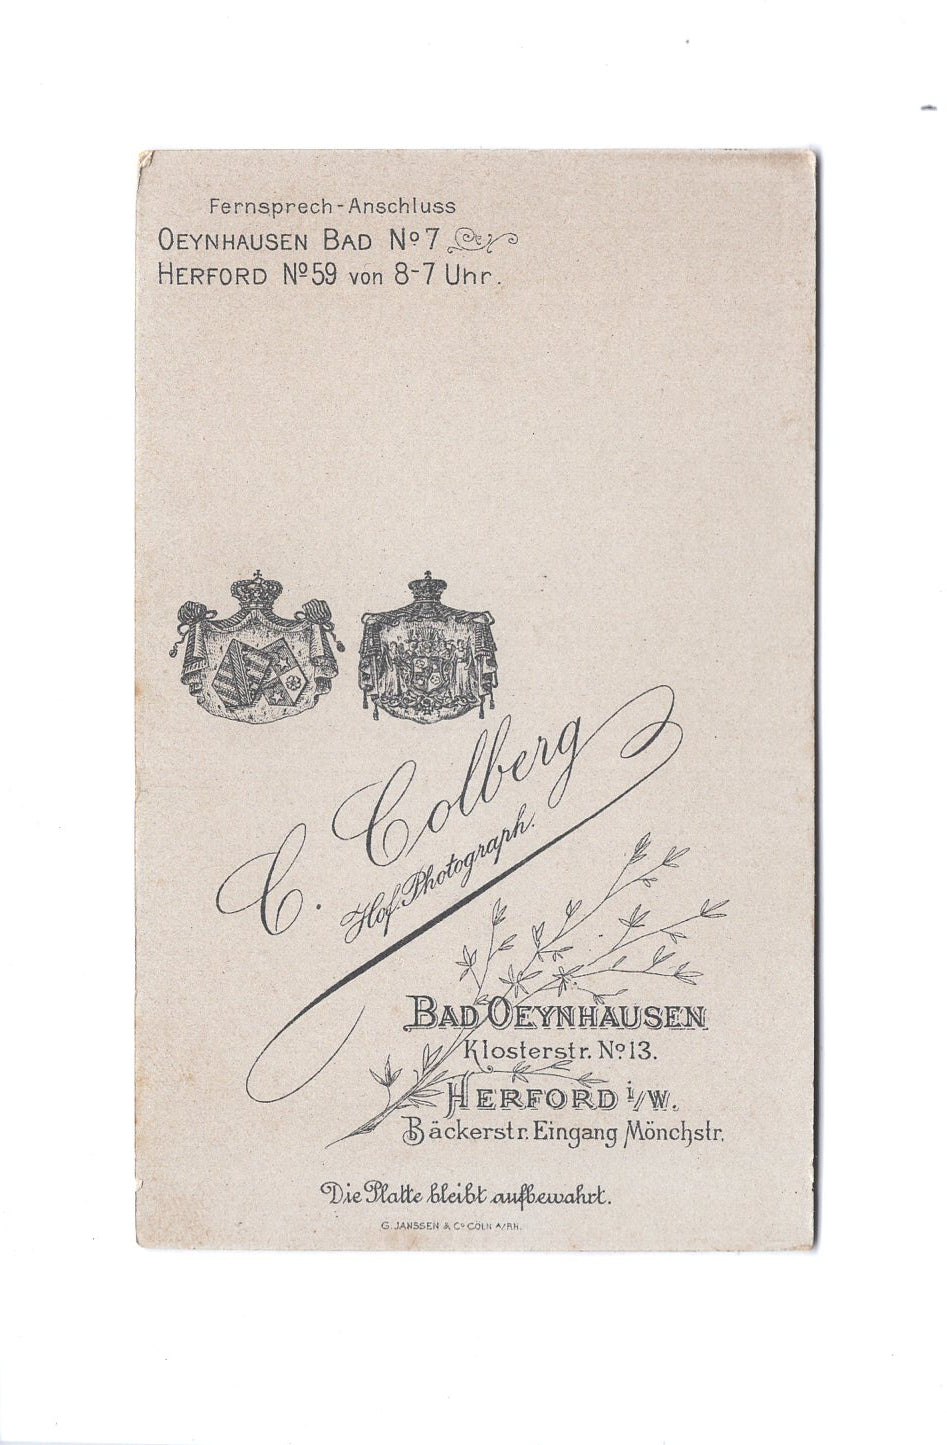 Fernsprech-Anschluss
OEYNHAUSEN BAD Nº 7
HERFORD Nº 59 von 8-7 Uhr.
C. Colberg
Hof Photograph.
BAD OEYNHAUSEN
Klosterstr. Nº 13.
HERFORD i/W.
Bäckerstr. Eingang Mönchstr.
Die Platte bleibt aufbewahrt.
G. JANSSEN & Cº CÖLN A/RH.